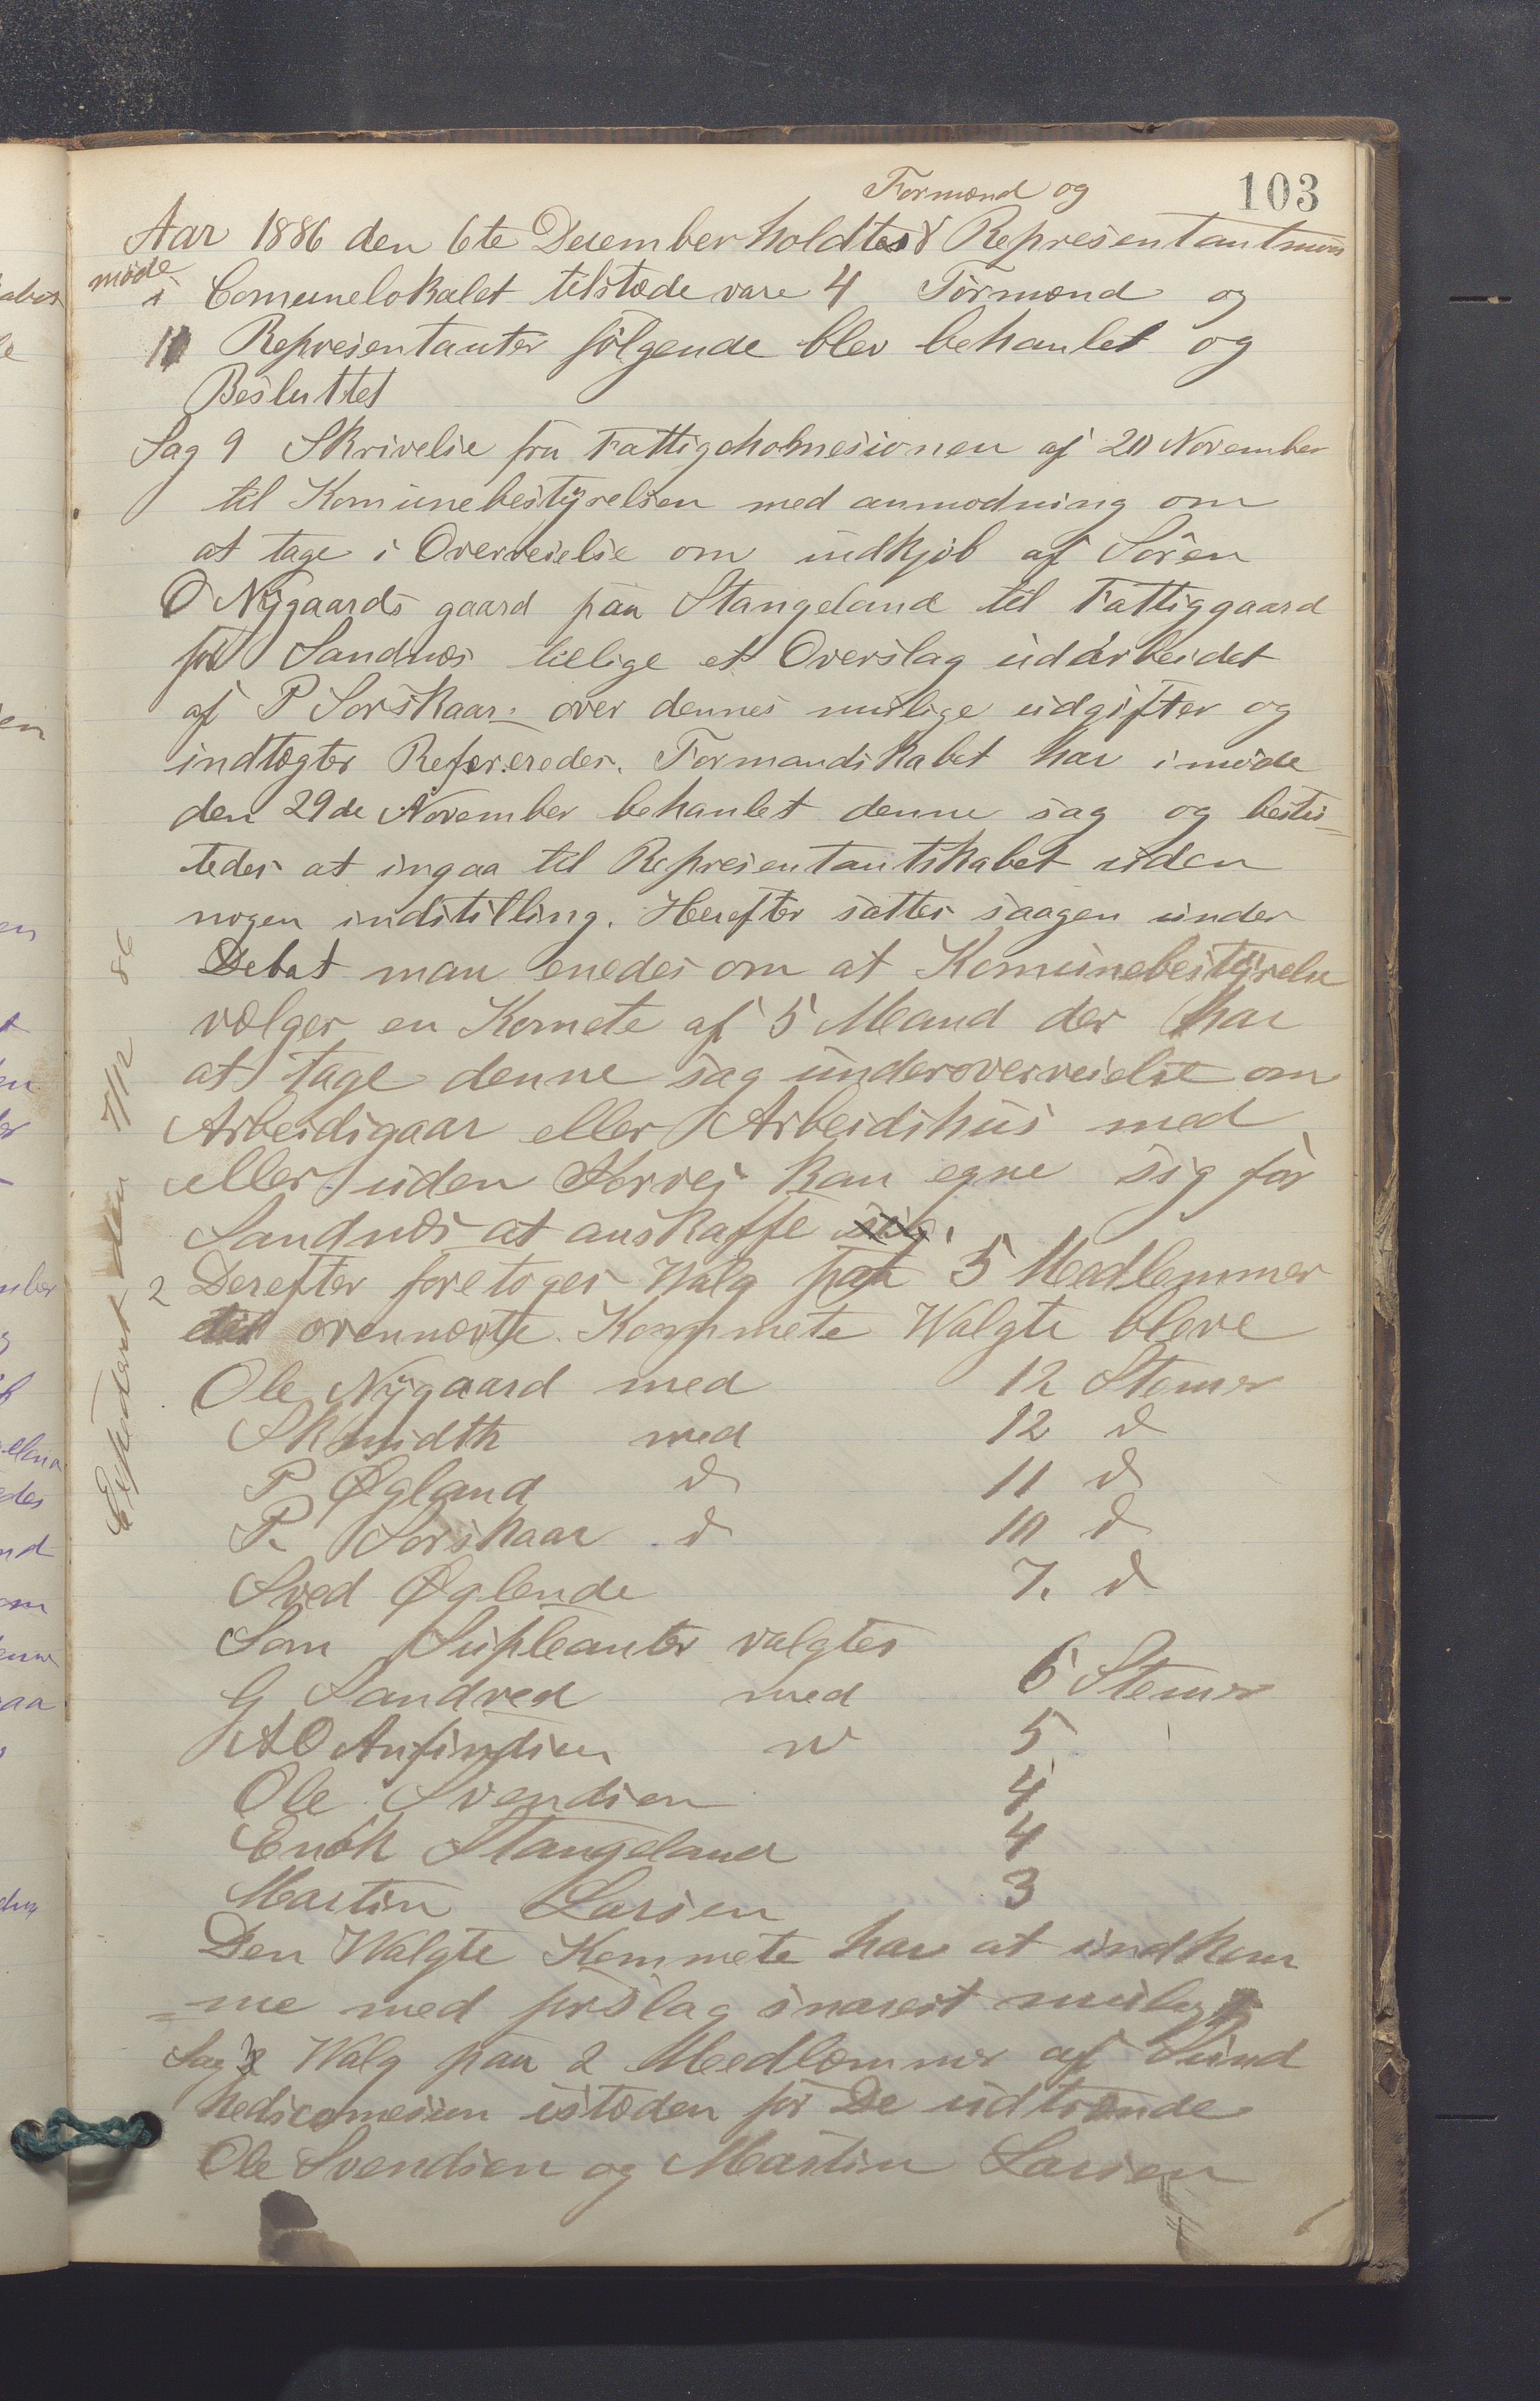 103
Formænd og
Aar 1886 den 6te Desember holdtes Representantmøde
møde
i Comunelokalet tilstæde vare 4 Formænd og
11 Representanter følgende blev behanlet og
Besluttet
Sag 1 Skrivelse fra Fattigchomesionen af 20 November
til Komunebestyrelsen med anmodning om
at tage i Overveielse om indkjøb af Søren
O Nygaards gaard paa Stangeland til Fattiggaard
for Sandnæs tillige et Overslag udarbeidet
af P Sorskaar over dennes mulige udgifter og
indtægter Refereredes. Formandskabet har i møde
den 29de November behanlet denne sag og besles=
tedes at ingaa til Representantskabet uden
nogen indstilling. Herefter sattes saagen under
Debat man enedes om at Komunebestyrelse
vælger en Komete af 5 Mand der har
at tage denne sag under overveielse om
Arbeidsgaar eller Arbeidshus med
eller uden Korvei kan egne sig for
Sandnæs at anskaffe
2 Derefter foretoges Valg paa 5 Medlemmer
til ovennævte Kommete Walgte bleve
Ole Nygaard med 12 Stemer
Skmidth med 12 d
P Øgland d 11 d
P. Sorskaar d 10 d
Sved Øglende 7. d
Som Supleanter valgtes
G Sandved med 6 Stemer
AO Anfindsen 5
Ole Svendsen 4
Enok Stangeland 4
Martin Larsen 3
Den Walgte Kommete have at indkom
=me med forslag snarest muligt
Sag 2 Walg paa 2 Medlæmmer af Sund
hedscomesiun istæden for De udtrænde
Ole Svendsen og Martin Larsen
Expedert den 7/12 86